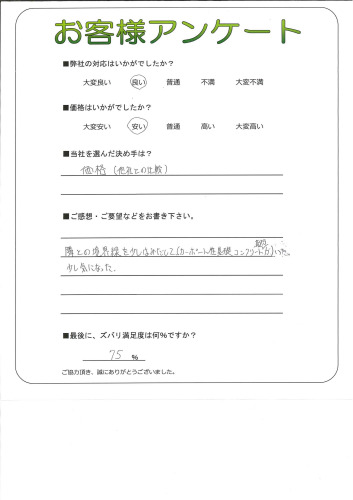 お客様アンケート
■弊社の対応はいかがでしたか？
大変良い 良い 普通 不満 大変不満
■価格はいかがでしたか？
大変安い 安い 普通 高い 大変高い
■当社を選んだ決め手は？
価格（他社との比較）
■ご感想・ご要望などをお書き下さい。
隣との境界線を少しはみだして（カーポート柱基礎コンクリートが）いた。
少し気になった。
■最後に、ズバリ満足度は何％ですか？
75 ％
ご協力頂き、誠にありがとうございました。